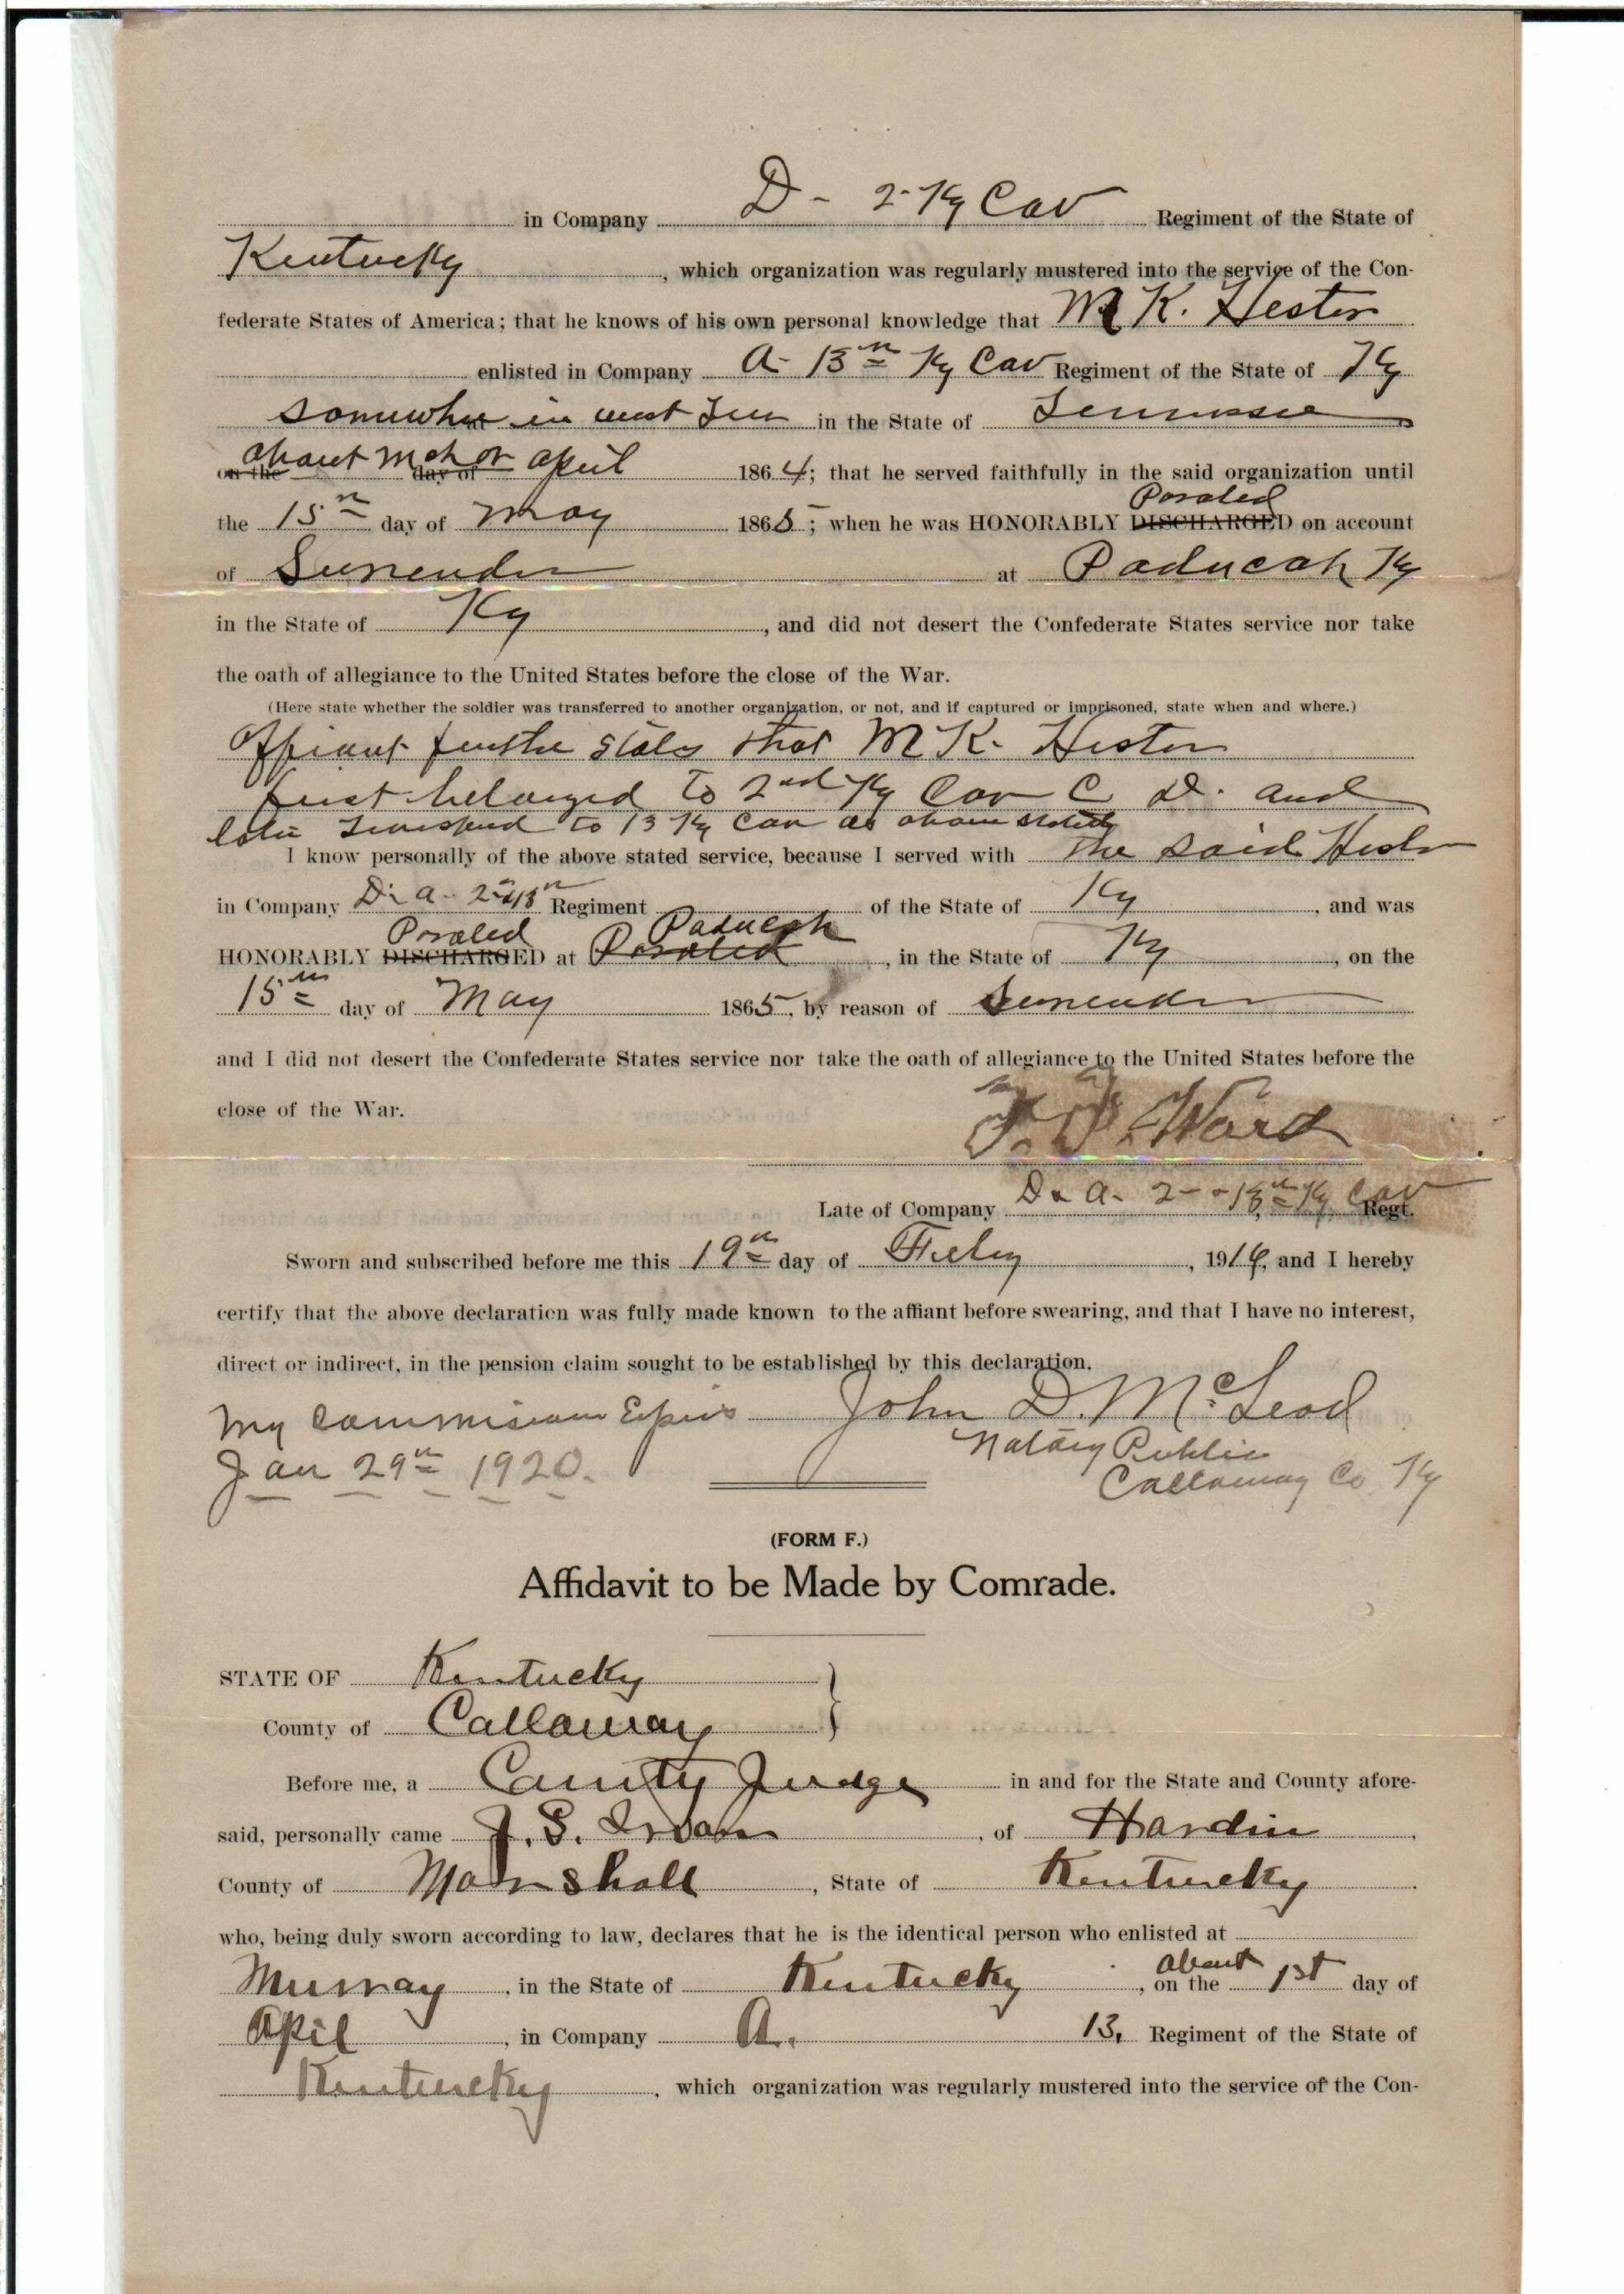 in Company D - 2 - Ky Cav Regiment of the State of
Kentucky, which organization was regularly mustered into the service of the Con-
federate States of America; that he knows of his own personal knowledge that M K. Hester
enlisted in Company A - 13th Ky Cav Regiment of the State of Ky
somewher in west Ten in the State of Tennessee
on the about Mch or day of April 1864; that he served faithfully in the said organization until
the 15th day of May 1865; when he was HONORABLY DISCHARGED Paroled on account
of Surrender at Paducah Ky
in the State of Ky, and did not desert the Confederate States service nor take
the oath of allegiance to the United States before the close of the War.
(Here state whether the soldier was transferred to another organization, or not, and if captured or imprisoned, state when and where.)
Affiant further states that M K. Hester
first belonged to 2nd Ky Cav C D. and
later to 13 Ky Cav as above stated
I know personally of the above stated service, because I served with the said Hester
in Company D & A - 2 & 13th Regiment of the State of Ky, and was
HONORABLY DISCHARGED Paroled at Paroled Paducah, in the State of Ky, on the
15th day of May 1865, by reason of Surrender
and I did not desert the Confederate States service nor take the oath of allegiance to the United States before the
close of the War.
Ward
Late of Company D & A - 2 - 13th Ky Cav Regt.
Sworn and subscribed before me this 19th day of Feby, 191, and I hereby
certify that the above declaration was fully made known to the affiant before swearing, and that I have no interest,
direct or indirect, in the pension claim sought to be established by this declaration.
My Commission Expires John D. McLeod
Jan 29th 1920. Notary Public
Callaway Co Ky
(FORM F.)
Affidavit to be Made by Comrade.
STATE OF Kentucky
County of Callaway
Before me, a County Judge in and for the State and County afore-
said, personally came J. S. Irvan, of Hardin,
County of Marshall, State of Kentucky.
who, being duly sworn according to law, declares that he is the identical person who enlisted at
Murray, in the State of Kentucky, on the about 1st day of
April, in Company A. 13, Regiment of the State of
Kentucky, which organization was regularly mustered into the service of the Con-